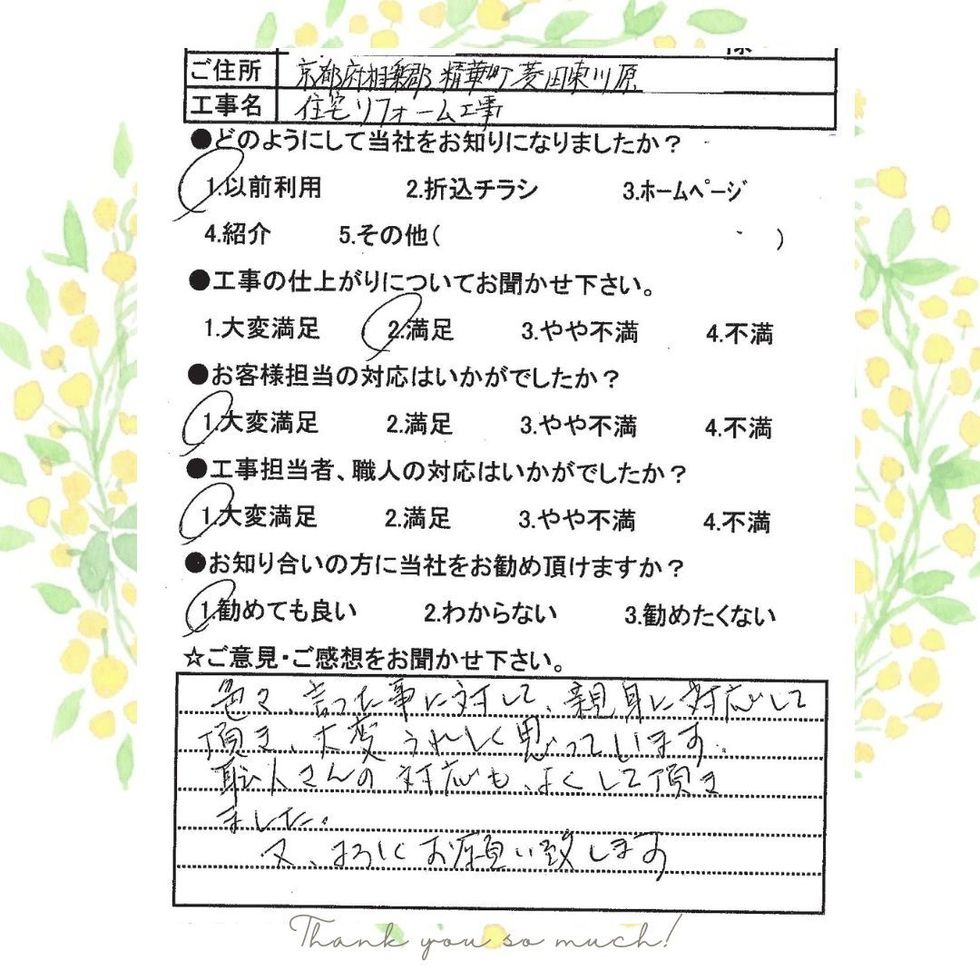 様
ご住所 京都府相楽郡精華町菱田東川原
工事名 住宅リフォーム工事
●どのようにして当社をお知りになりましたか？
1.以前利用 2.折込チラシ 3.ホームページ
4.紹介 5.その他( )
●工事の仕上がりについてお聞かせ下さい。
1.大変満足 2.満足 3.やや不満 4.不満
●お客様担当の対応はいかがでしたか？
1.大変満足 2.満足 3.やや不満 4.不満
●工事担当者、職人の対応はいかがでしたか？
1.大変満足 2.満足 3.やや不満 4.不満
●お知り合いの方に当社をお勧め頂けますか？
1.勧めても良い 2.わからない 3.勧めたくない
☆ご意見・ご感想をお聞かせ下さい。
色々、言った事に対して、親身に対応して
頂き、大変うれしく思っています。
職人さんの対応も、よくして頂き
ました。
又、よろしくお願い致します
Thank you so much!